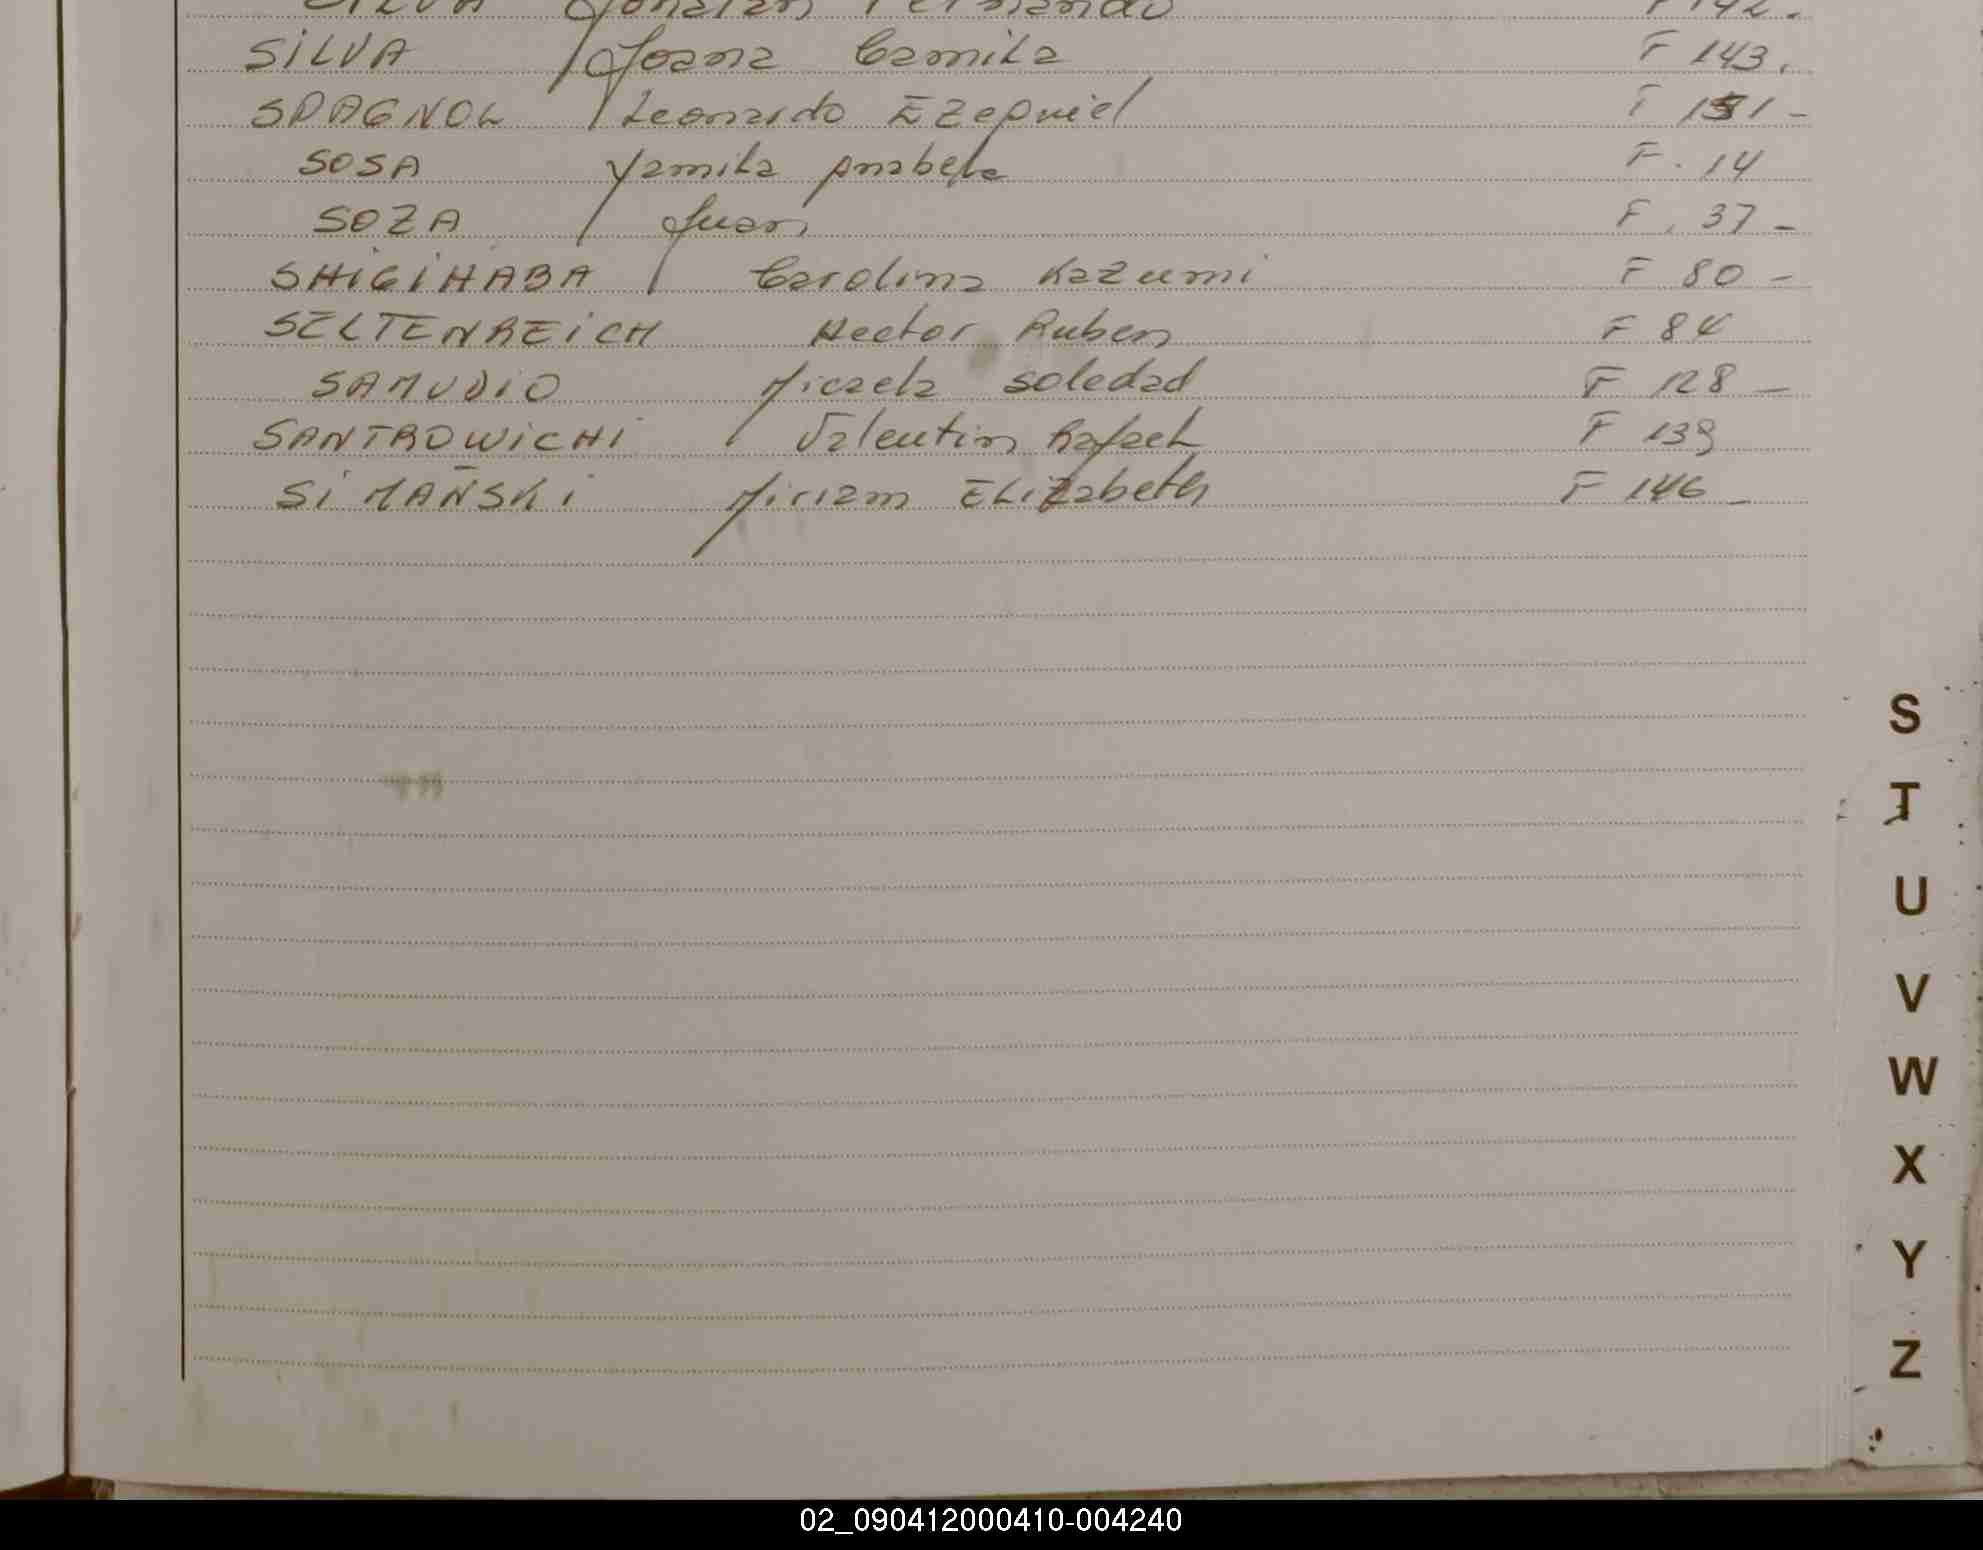 SILVA Jonatan Fernando F 142.
SILVA Joana Camila F 143.
SPAGNOL Leonardo Ezequiel F 151 -
SOSA Yamila Anabela F. 14
SOZA Juan F. 37 -
SHIGIHABA Carolina Kazumi F 80 -
SELTENREICH Hector Ruben F 84
SAMUDIO Micaela Soledad F 128 -
SANTROWICHI Valentin Rafael F 139
SIMAÑSKI Miriam Elizabeth F 146 -
S
T
U
V
W
X
Y
Z
02_090412000410-004240